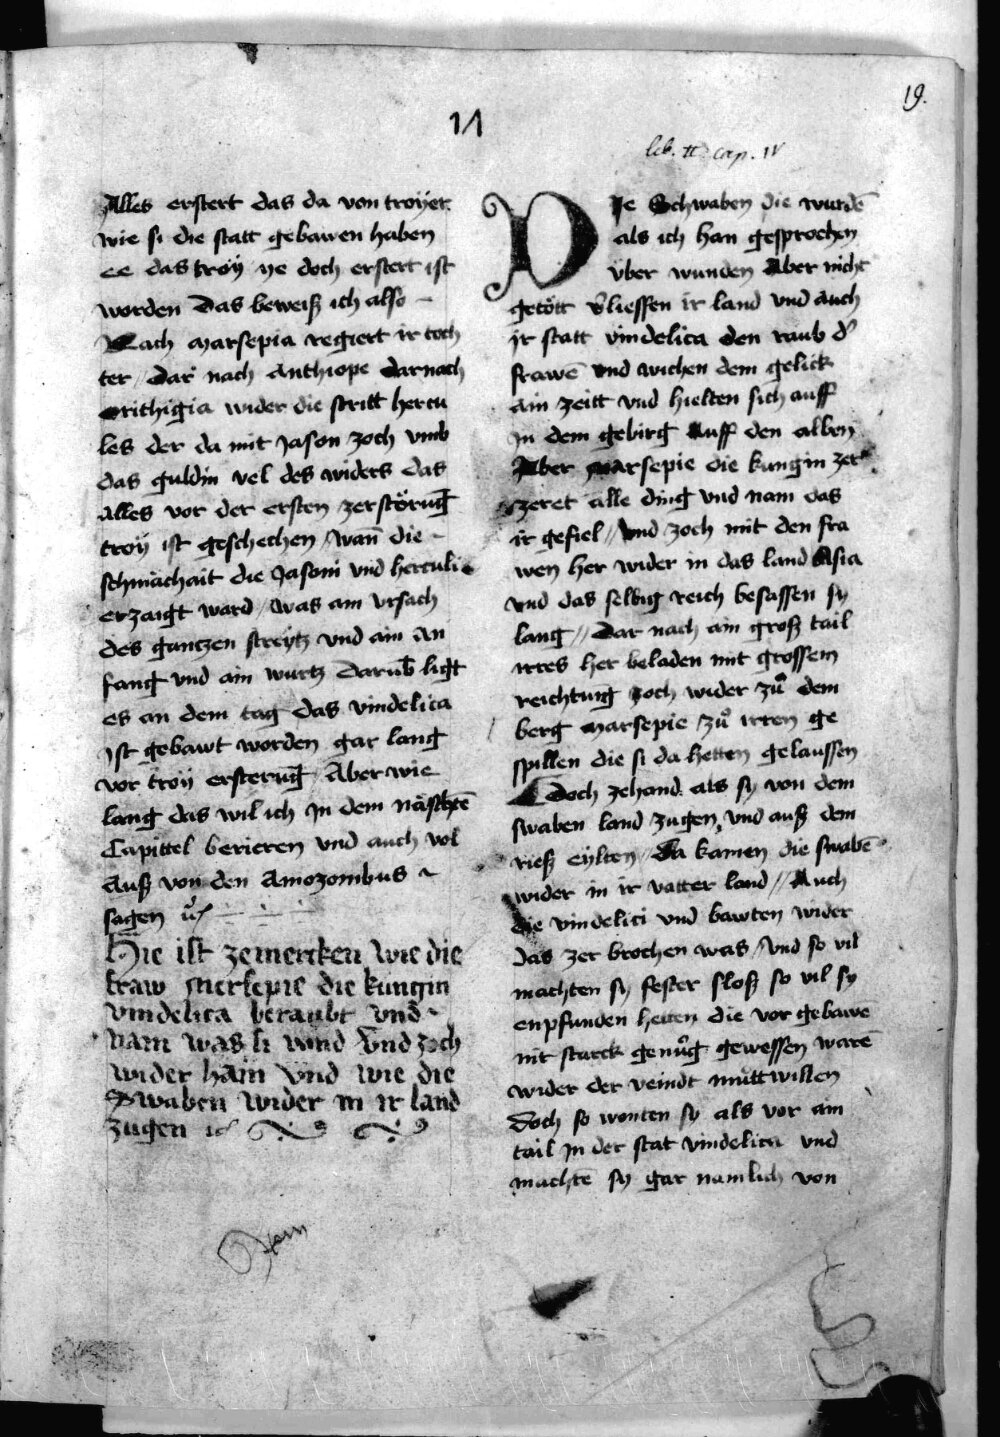 19.
lib. II cap. IV
Alles erstert das da von troyer
wie si die statt gebawen haben
ee das troÿ ye doch erstert ist
worden Das beweiß ich also
Nach marsepia regiert ir toch
ter // Dar nach Anthiope darnach
orithigia wider die stritt hercu
les der da mit Jason zoch vmb
das guldin vel des widers das
alles vor der ersten zerstörug̅
troÿ ist geschechen / wan̅ die
schmächait die Jasoni vnd herculi
erzaigt ward / was ain vrsach
des gantzen streytz vnd ain an
fang vnd ain wurtz Darub̅ ligt
es an dem tag das vindelica
Ist gebawt worden gar lang
vor troÿ ersterug̅ Aber wie
lang das wil ich In dem näschte̅
Capittel berieren vnd auch vol
Auß von den Amozonibus
sagen
Hie ist zemercken wie die
fraw merssepie die küngin
vindelica beraubt vnd
nam was si vand vnd zoch
wider hain vnd wie die
Swaben wider in ir land
zugen
DIe Schwaben die wurde̅
als ich han gesprochen
Vber wunden Aber nicht
getött v̓liessen ir land vnd auch
ir statt vindelica den raub d̓
frawe̅ vnd wichen dem gelick
ain zeitt vnd hielten sich auff
in dem gebirg auff den alben
Aber marsepie die kungin zer
zeret alle ding vnd nam das
ir gefiel // vnd zoch mit den fra
wen her wider in das land Asia
vnd das selbig reich besassen sy
lang // Dar nach ain groß tail
irres her beladen mit grossem
reichtung zoch wider zů dem
berg marsepie zů irren ge
spillen die si da hetten gelaussen
Doch zehand als sy von dem
swaben land zugen vnd auß dem
rieß eylten // Da kamen die swabe̅
wider in ir vatter land // Auch
die vindelici vnd bawten wider
das zer brochen was / vnd so vil
machten sy fester sloß so vil sy
enpfunden hetten die vor gebawe̅
nit starck genůg gewessen ware̅
wider der veindt můttwillen
Doch so wonten sy als vor ain
tail In der stat vindelica vnd
machte̅ sy gar namlich von